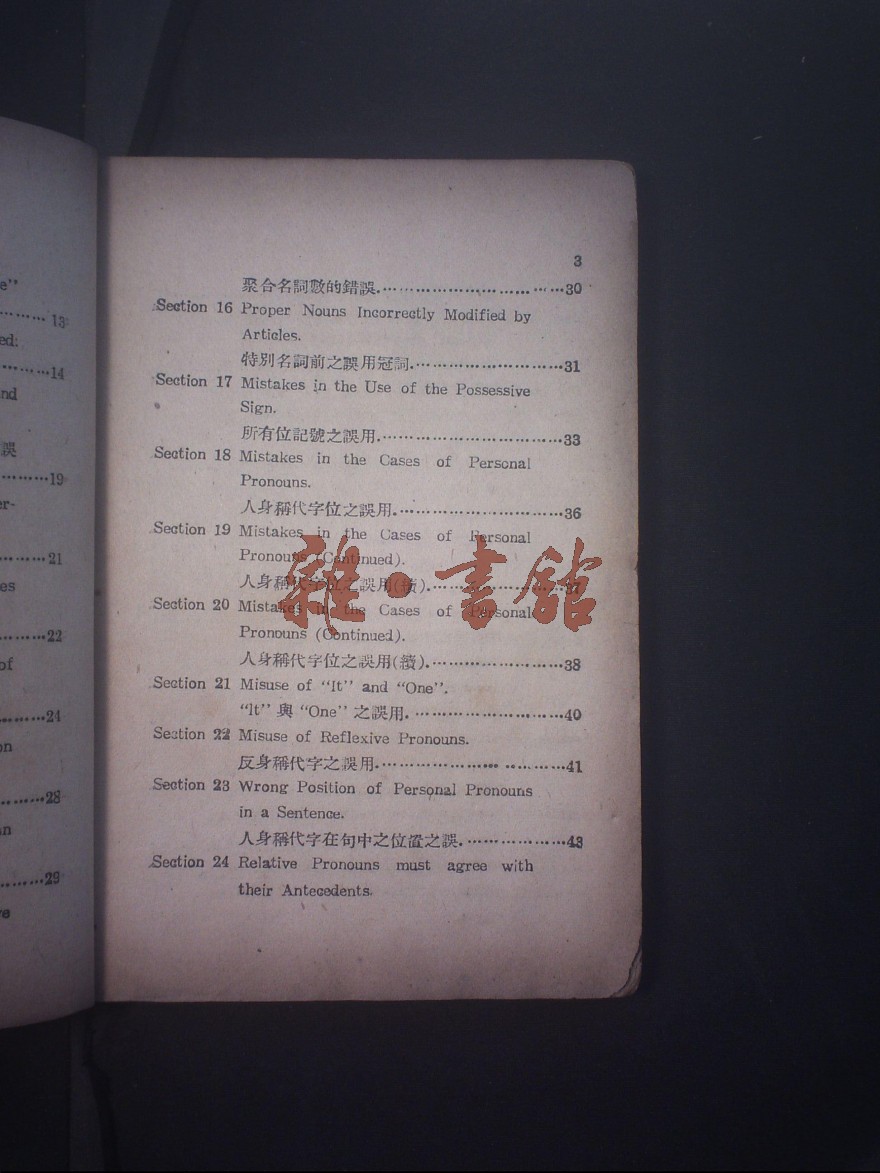 e”
13
ed:
14
nd
誤
19
er-
21
es
22
of
24
on
28
an
29
ve
3
聚合名詞數的錯誤.……………………………30
Section 16 Proper Nouns Incorrectly Modified by
Articles.
特別名詞前之誤用冠詞.………………………31
Section 17 Mistakes in the Use of the Possessive
Sign.
所有位記號之誤用.……………………………33
Section 18 Mistakes in the Cases of Personal
Pronouns.
人身稱代字位之誤用.…………………………36
Section 19 Mistakes in the Cases of Personal
Pronouns (Continued).
人身稱代字位之誤用(續).……………………37
Section 20 Mistakes in the Cases of Personal
Pronouns (Continued).
人身稱代字位之誤用(續).……………………38
Section 21 Misuse of “It” and “One”.
“It” 與 “One” 之誤用.………………………40
Section 22 Misuse of Reflexive Pronouns.
反身稱代字之誤用.……………………………41
Section 23 Wrong Position of Personal Pronouns
in a Sentence.
人身稱代字在句中之位置之誤.………………43
Section 24 Relative Pronouns must agree with
their Antecedents.
雜·書館